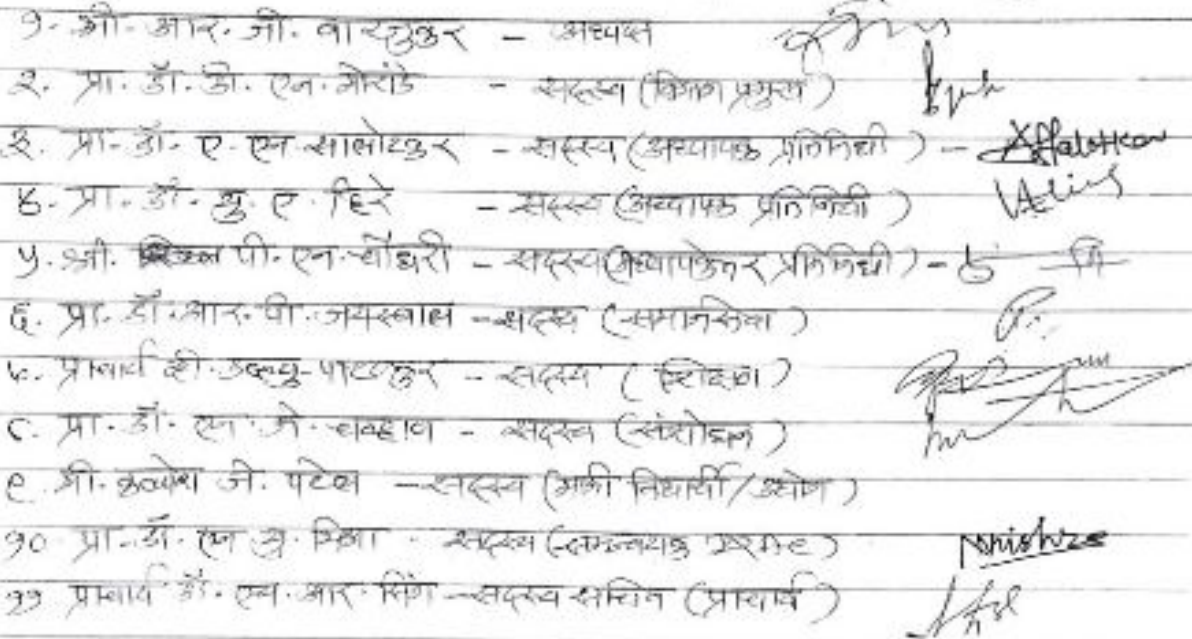 १. श्री. आर. जी. वारुळकर - अध्यक्ष
२. प्रा. डॉ. डी. एन. मोरांडे - सदस्य (विभाग प्रमुख)
३. प्रा. डॉ. ए. एन. सालोटकर - सदस्य (अध्यापक प्रतिनिधी) -
४. प्रा. डॉ. यु. ए. हिरे - सदस्य (अध्यापक प्रतिनिधी)
५. श्री. पी. एन. चौधरी - सदस्य (अध्यापकेत्तर प्रतिनिधी) -
६. प्रा. डॉ. आर. पी. जयस्वाल - सदस्य (समाजसेवा)
७. प्राचार्य डब्ल्यु. पाटणकर - सदस्य (शिक्षण)
८. प्रा. डॉ. एस. जे. चव्हाण - सदस्य (संशोधन)
९. श्री. जे. पटेल - सदस्य (माजी विद्यार्थी/उद्योग)
१० प्रा. डॉ. एन. यु. मिश्रा - सदस्य (समन्वयक)
११ प्राचार्य डॉ. एच. आर. सिंग - सदस्य सचिव (प्राचार्य)